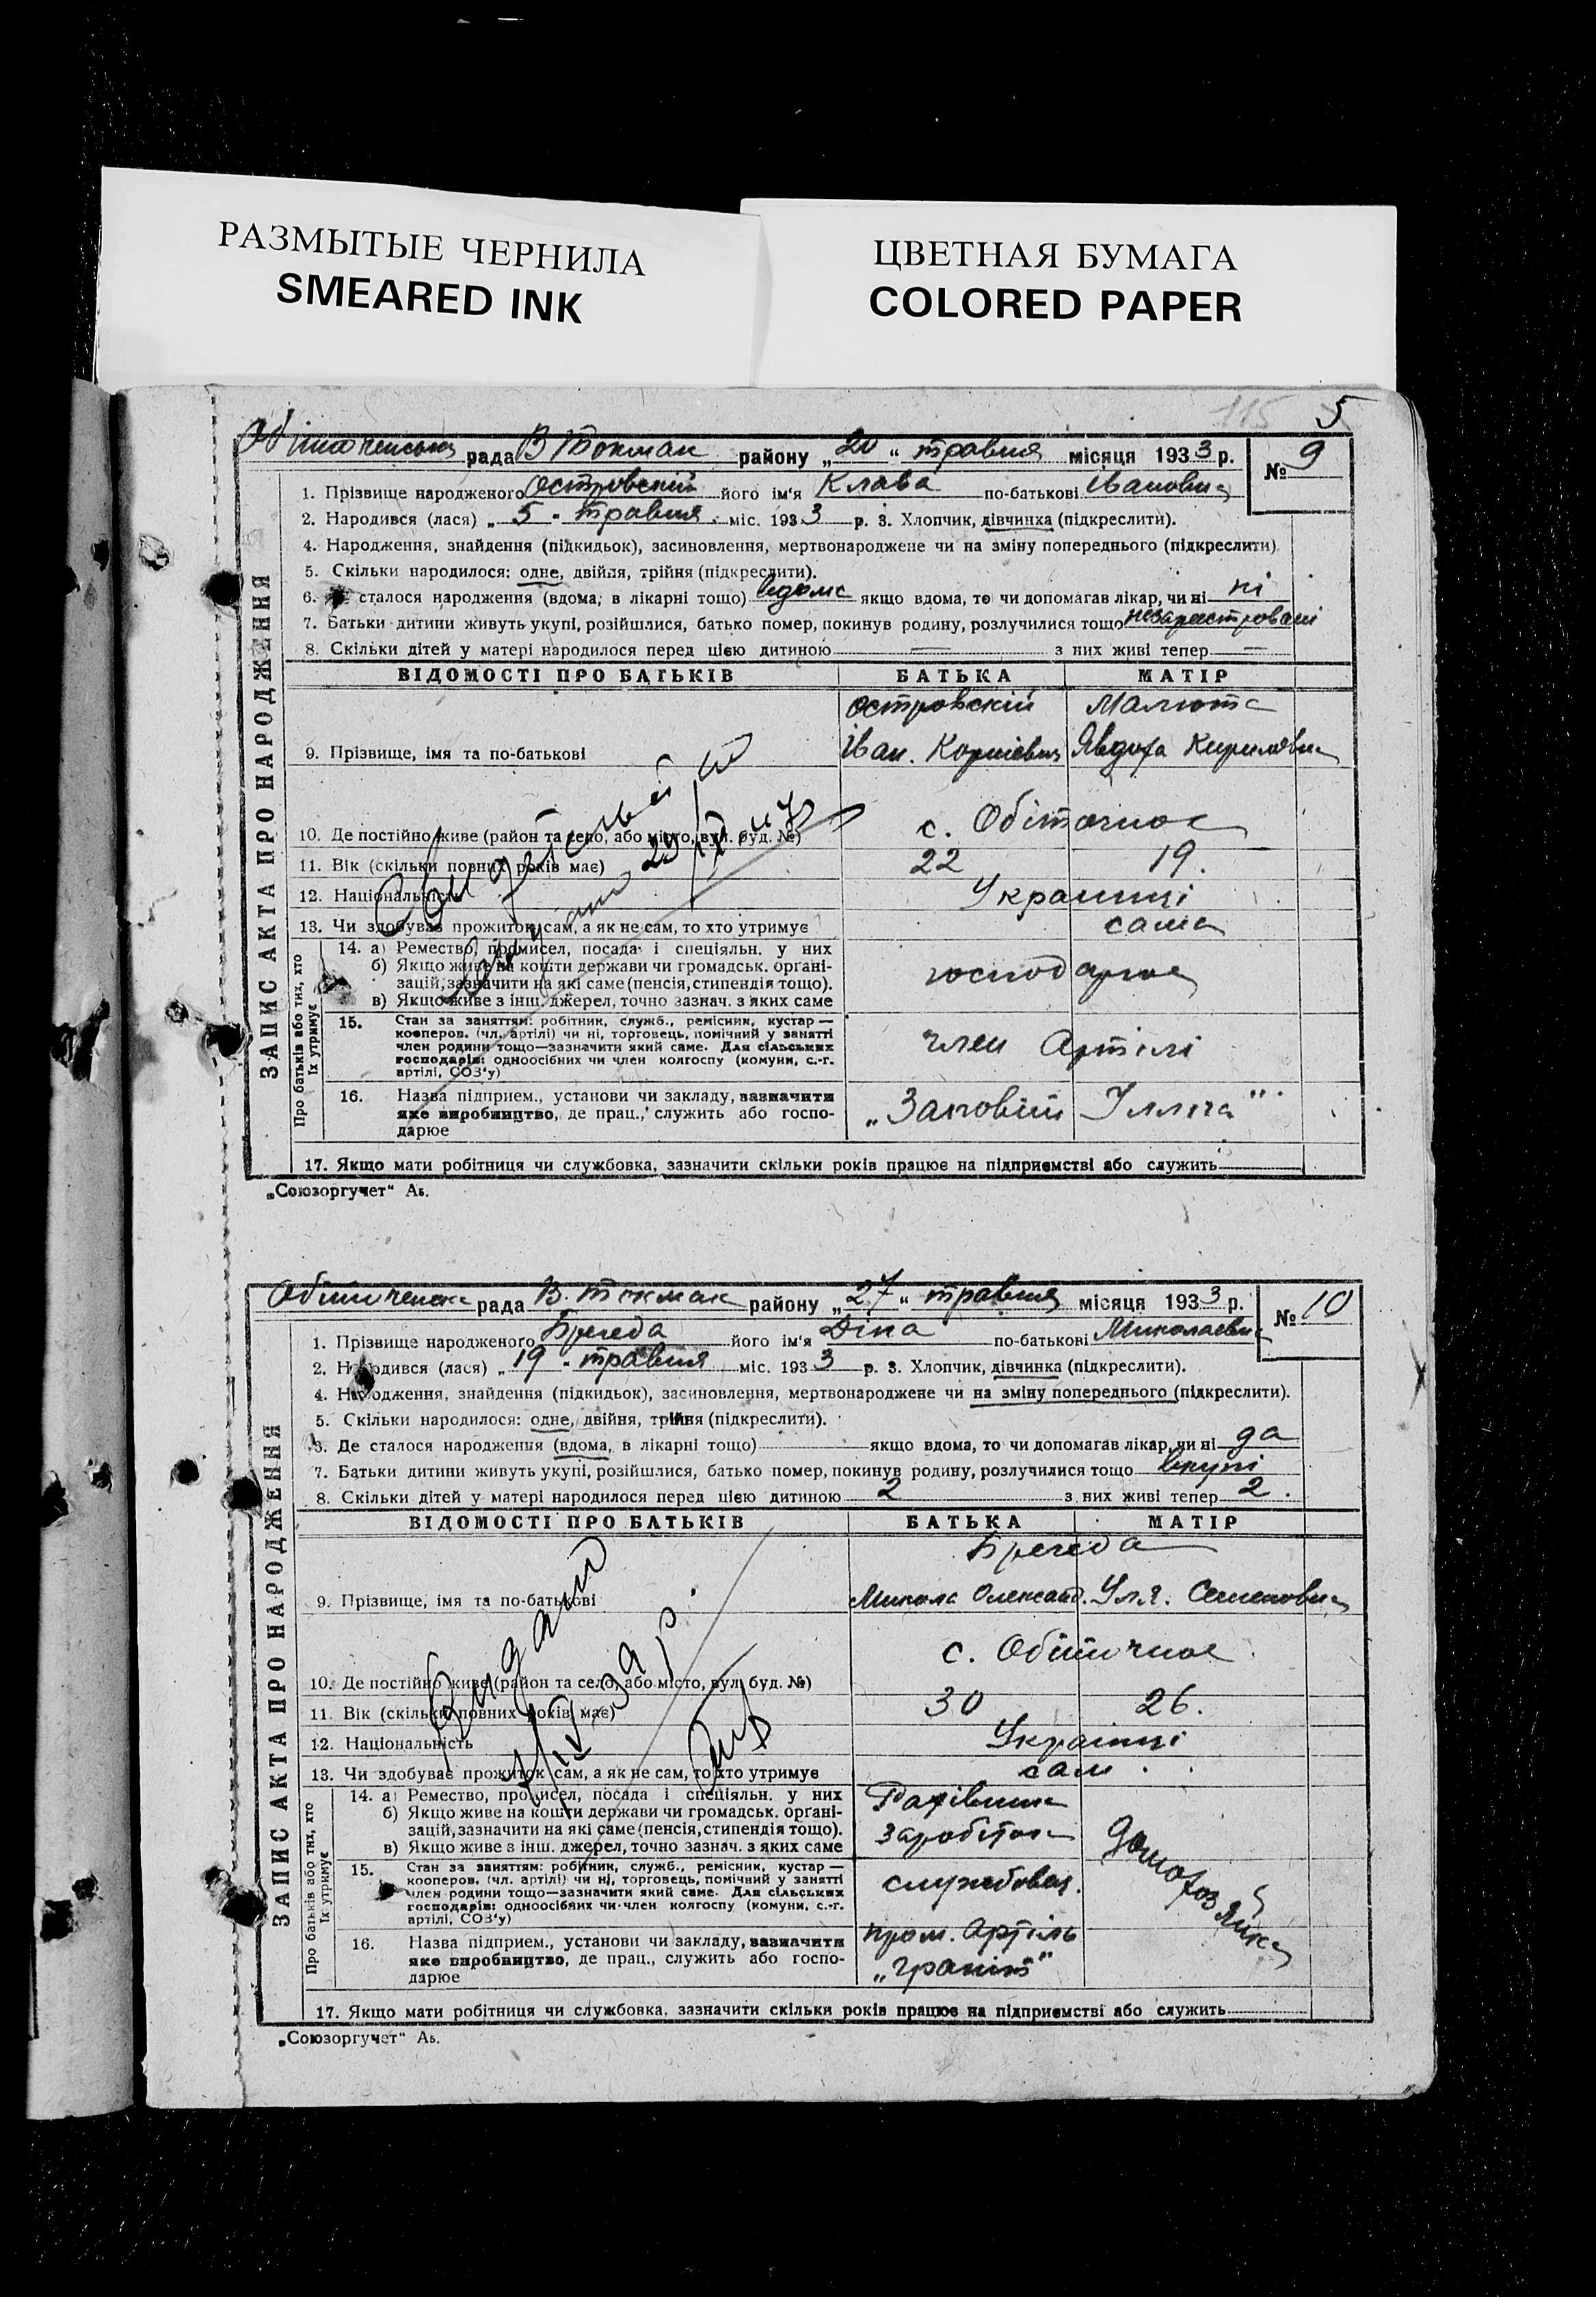 РАЗМЫТЫЕ ЧЕРНИЛА
SMEARED INK
ЦВЕТНАЯ БУМАГА
COLORED PAPER
115
5
рада В Токмак району „20“ травня місяця 1933 р. № 9
ЗАПИС АКТА ПРО НАРОДЖЕННЯ
1. Прізвище народженого Островскій його ім'я Клава по-батькові Івановна
2. Народився (лася) „5“ травня міс. 1933 р. 3. Хлопчик, дівчинка (підкреслити).
4. Народження, знайдення (підкидьок), засиновлення, мертвонароджене чи на зміну попереднього (підкреслити)
5. Скільки народилося: одне, двійня, трійня (підкреслити).
6. сталося народження (вдома, в лікарні тощо) вдома якщо вдома, то чи допомагав лікар, чи ні ні
7. Батьки дитини живуть укупі, розійшлися, батько помер, покинув родину, розлучилися тощо незареєстровані
8. Скільки дітей у матері народилося перед цією дитиною — з них живі тепер —
ВІДОМОСТІ ПРО БАТЬКІВ БАТЬКА МАТІР
Островскій Малюта
9. Прізвище, імя та по-батькові Іван Явдоха Кириловна
10. Де постійно живе (район та село, або місто, вул. буд. №) с. Обіточное
11. Вік (скільки повних років має) 22 19.
12. Національність Українці
13. Чи здобуває прожиток сам, а як не сам, то хто утримує сама
Про батьків або тих, хто їх утримує
14. а) Ремество, промисел, посада і спеціяльн. у них
б) Якщо живе на кошти держави чи громадськ. орґані-
зацій, зазначити на які саме (пенсія, стипендія тощо).
в) Якщо живе з інш. джерел, точно зазнач. з яких саме
15. Стан за заняттям: робітник, служб., ремісник, кустар —
кооперов. (чл. артілі) чи ні, торговець, помічний у занятті
член родини тощо—зазначити який саме. Для сільських
господарів: одноосібних чи член колгоспу (комуни, с.-г.
артілі, СОЗ'у)
член Артілі
16. Назва підприем., установи чи закладу, зазначити
яке виробництво, де прац., служить або госпо-
дарює
„Заповіт Ілліча“
17. Якщо мати робітниця чи службовка, зазначити скільки років працює на підприємстві або служить
„Союзоргучет“ Аь.
рада В. Токмак району „27“ травня місяця 1933 р. № 10
ЗАПИС АКТА ПРО НАРОДЖЕННЯ
1. Прізвище народженого його ім'я Діна по-батькові Миколаевна
2. Народився (лася) „19“ травня міс. 1933 р. 3. Хлопчик, дівчинка (підкреслити).
4. Народження, знайдення (підкидьок), засиновлення, мертвонароджене чи на зміну попереднього (підкреслити).
5. Скільки народилося: одне, двійня, трійня (підкреслити).
6. Де сталося народження (вдома, в лікарні тощо) якщо вдома, то чи допомагав лікар, чи ні да
7. Батьки дитини живуть укупі, розійшлися, батько помер, покинув родину, розлучилися тощо вкупі
8. Скільки дітей у матері народилося перед цією дитиною 2 з них живі тепер 2.
ВІДОМОСТІ ПРО БАТЬКІВ БАТЬКА МАТІР
9. Прізвище, імя та по-батькові Микола Олександ. Уля. Семеновна
10. Де постійно живе (район та село, або місто, вул. буд. №) с. Обіточное
11. Вік (скільки повних років має) 30 26.
12. Національність Українці
13. Чи здобуває прожиток сам, а як не сам, то хто утримує сам
Про батьків або тих, хто їх утримує
14. а) Ремество, промисел, посада і спеціяльн. у них
б) Якщо живе на кошти держави чи громадськ. орґані-
зацій, зазначити на які саме (пенсія, стипендія тощо).
в) Якщо живе з інш. джерел, точно зазнач. з яких саме
домохозяйка
15. Стан за заняттям: робітник, служб., ремісник, кустар —
кооперов. (чл. артілі) чи ні, торговець, помічний у занятті
член родини тощо—зазначити який саме. Для сільських
господарів: одноосібних чи член колгоспу (комуни, с.-г.
артілі, СОЗ'у)
службовец.
16. Назва підприем., установи чи закладу, зазначити
яке виробництво, де прац., служить або госпо-
дарює
пром. Артіль
„Граніт“
17. Якщо мати робітниця чи службовка, зазначити скільки років працює на підприємстві або служить
„Союзоргучет“ Аь.